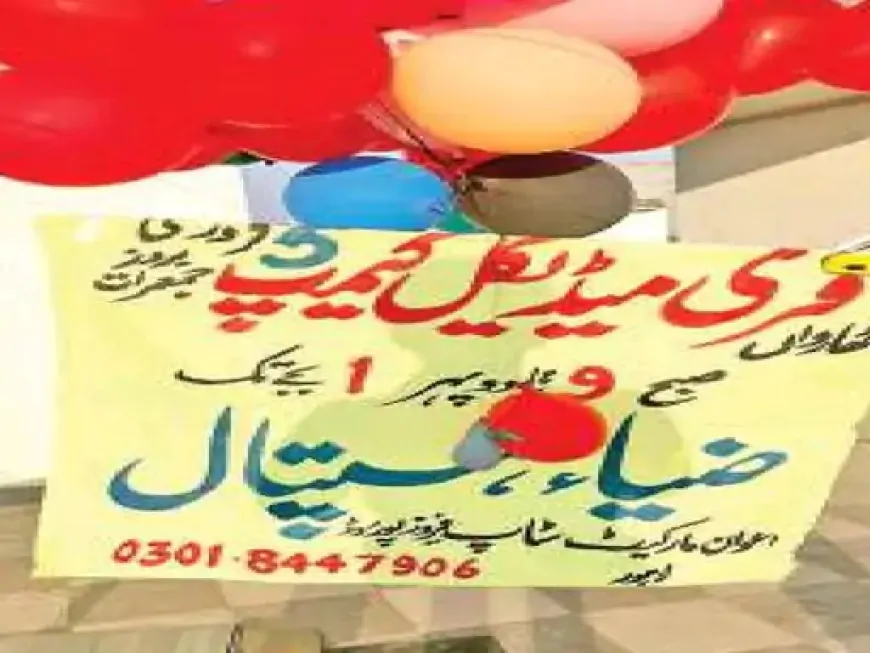 فری میڈیکل کیمپ 5
بروز
جمعرات
صبح 9 تا دوپہر 1 بجے تک
ضیاء ہسپتال
اعوان مارکیٹ سٹاپ فیروز پور روڈ
لاہور
0301-8447906